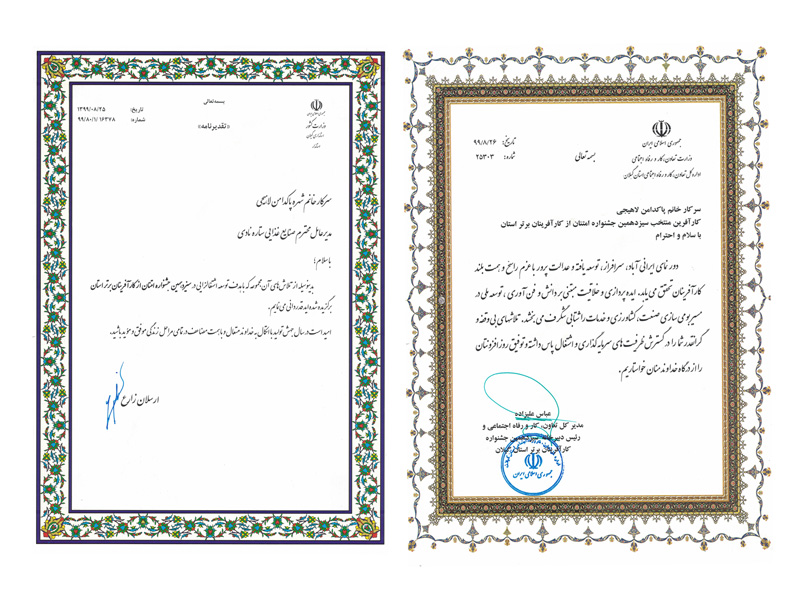 بسمه تعالی
جمهوری اسلامی ایران
وزارت کشور
استانداری گیلان
استاندار
تاریخ: ۱۳۹۹/۰۸/۲۵
شماره: ۹۹/۸۰/۱/۱۶۳۷۸
«تقدیرنامه»
سرکار خانم شهره پاکدامن لاهیجی
مدیرعامل محترم صنایع غذایی ستاره نادی
با سلام؛
بدینوسیله از تلاش‌های آن مجموعه که با هدف توسعه اشتغالزایی در سیزدهمین جشنواره امتنان از کارآفرینان برتر استان
برگزیده شده اید قدردانی می‌نمایم.
امید است در سال جهش تولید با اتکال به خداوند متعال و با همت مضاعف در تمامی مراحل زندگی موفق و موید باشید.
ارسلان زارع
جمهوری اسلامی ایران
وزارت تعاون، کار و رفاه اجتماعی
اداره کل تعاون، کار و رفاه اجتماعی استان گیلان
بسمه تعالی
تاریخ: ۹۹/۸/۲۶
شماره: ۲۵۳۰۳
سرکار خانم پاکدامن لاهیجی
کارآفرین منتخب سیزدهمین جشنواره امتنان از کارآفرینان برتر استان
با سلام و احترام
دورنمای ایرانی آباد، سرافراز، توسعه یافته و عدالت پرور با عزم راسخ و همت بلند
کارآفرینان تحقق می یابد. ایده پردازی و خلاقیت مبتنی بر دانش و فن آوری، توسعه ملی در
مسیر بومی سازی صنعت، کشاورزی و خدمات را شتابی شگرف می بخشد. تلاشهای بی وقفه و
گرانقدر شما را در گسترش ظرفیت های سرمایه گذاری و اشتغال پاس داشته و توفیق روزافزونتان
را از درگاه خداوند منان خواستاریم.
عباس علیزاده
مدیر کل تعاون، کار و رفاه اجتماعی و
رئیس دبیرخانه سیزدهمین جشنواره
کارآفرینان برتر استان گیلان
جمهوری اسلامی ایران